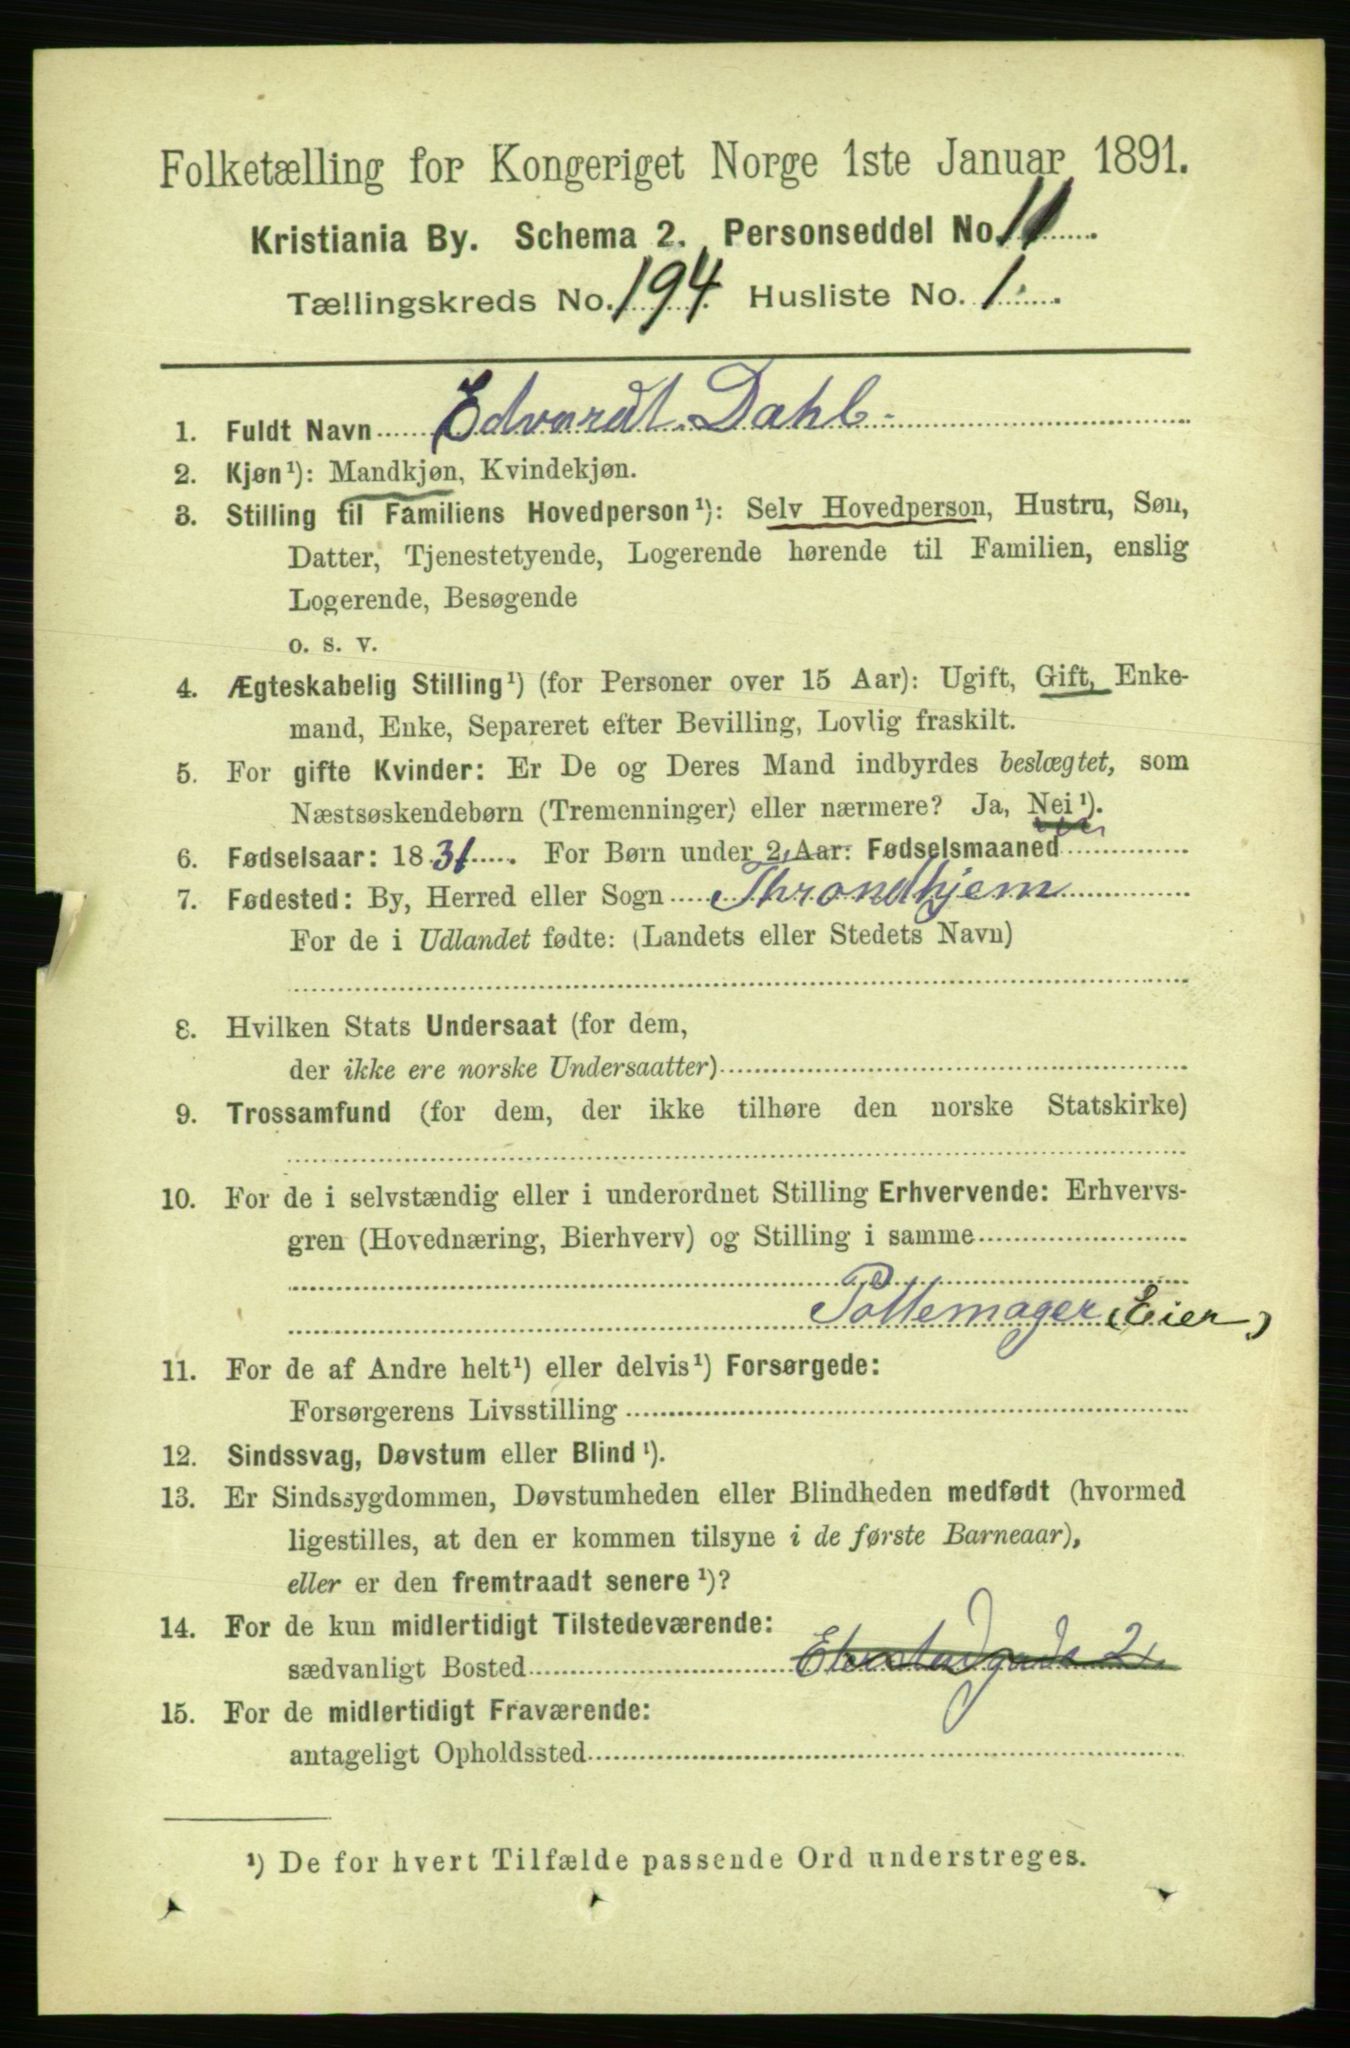 Folketælling for Kongeriget Norge 1ste Januar 1891.
Kristiania By. Schema 2. Personseddel No. 11
Tællingskreds No. 194. Husliste No. 1.
1. Fuldt Navn Edvardt Dahl.
2. Kjøn¹): Mandkjøn, Kvindekjøn.
3. Stilling til Familiens Hovedperson¹): Selv Hovedperson, Hustru, Søn,
Datter, Tjenestetyende, Logerende hørende til Familien, enslig
Logerende, Besøgende
o. s. v.
4. Ægteskabelig Stilling¹) (for Personer over 15 Aar): Ugift, Gift, Enke-
mand, Enke, Separeret efter Bevilling, Lovlig fraskilt.
5. For gifte Kvinder: Er De og Deres Mand indbyrdes beslægtet, som
Næstsøskendebørn (Tremenninger) eller nærmere? Ja, Nei¹).
6. Fødselsaar: 1831. For Børn under 2 Aar: Fødselsmaaned
7. Fødested: By, Herred eller Sogn Throndhjem
For de i Udlandet fødte: (Landets eller Stedets Navn)
8. Hvilken Stats Undersaat (for dem,
der ikke ere norske Undersaatter)
9. Trossamfund (for dem, der ikke tilhøre den norske Statskirke)
10. For de i selvstændig eller i underordnet Stilling Erhvervende: Erhvervs-
gren (Hovednæring, Bierhverv) og Stilling i samme
Pottemager (Eier)
11. For de af Andre helt¹) eller delvis¹) Forsørgede:
Forsørgerens Livsstilling
12. Sindssvag, Døvstum eller Blind¹).
13. Er Sindssygdommen, Døvstumheden eller Blindheden medfødt (hvormed
ligestilles, at den er kommen tilsyne i de første Barneaar),
eller er den fremtraadt senere¹)?
14. For de kun midlertidigt Tilstedeværende:
sædvanligt Bosted 2.
15. For de midlertidigt Fraværende:
antageligt Opholdssted
¹) De for hvert Tilfælde passende Ord understreges.